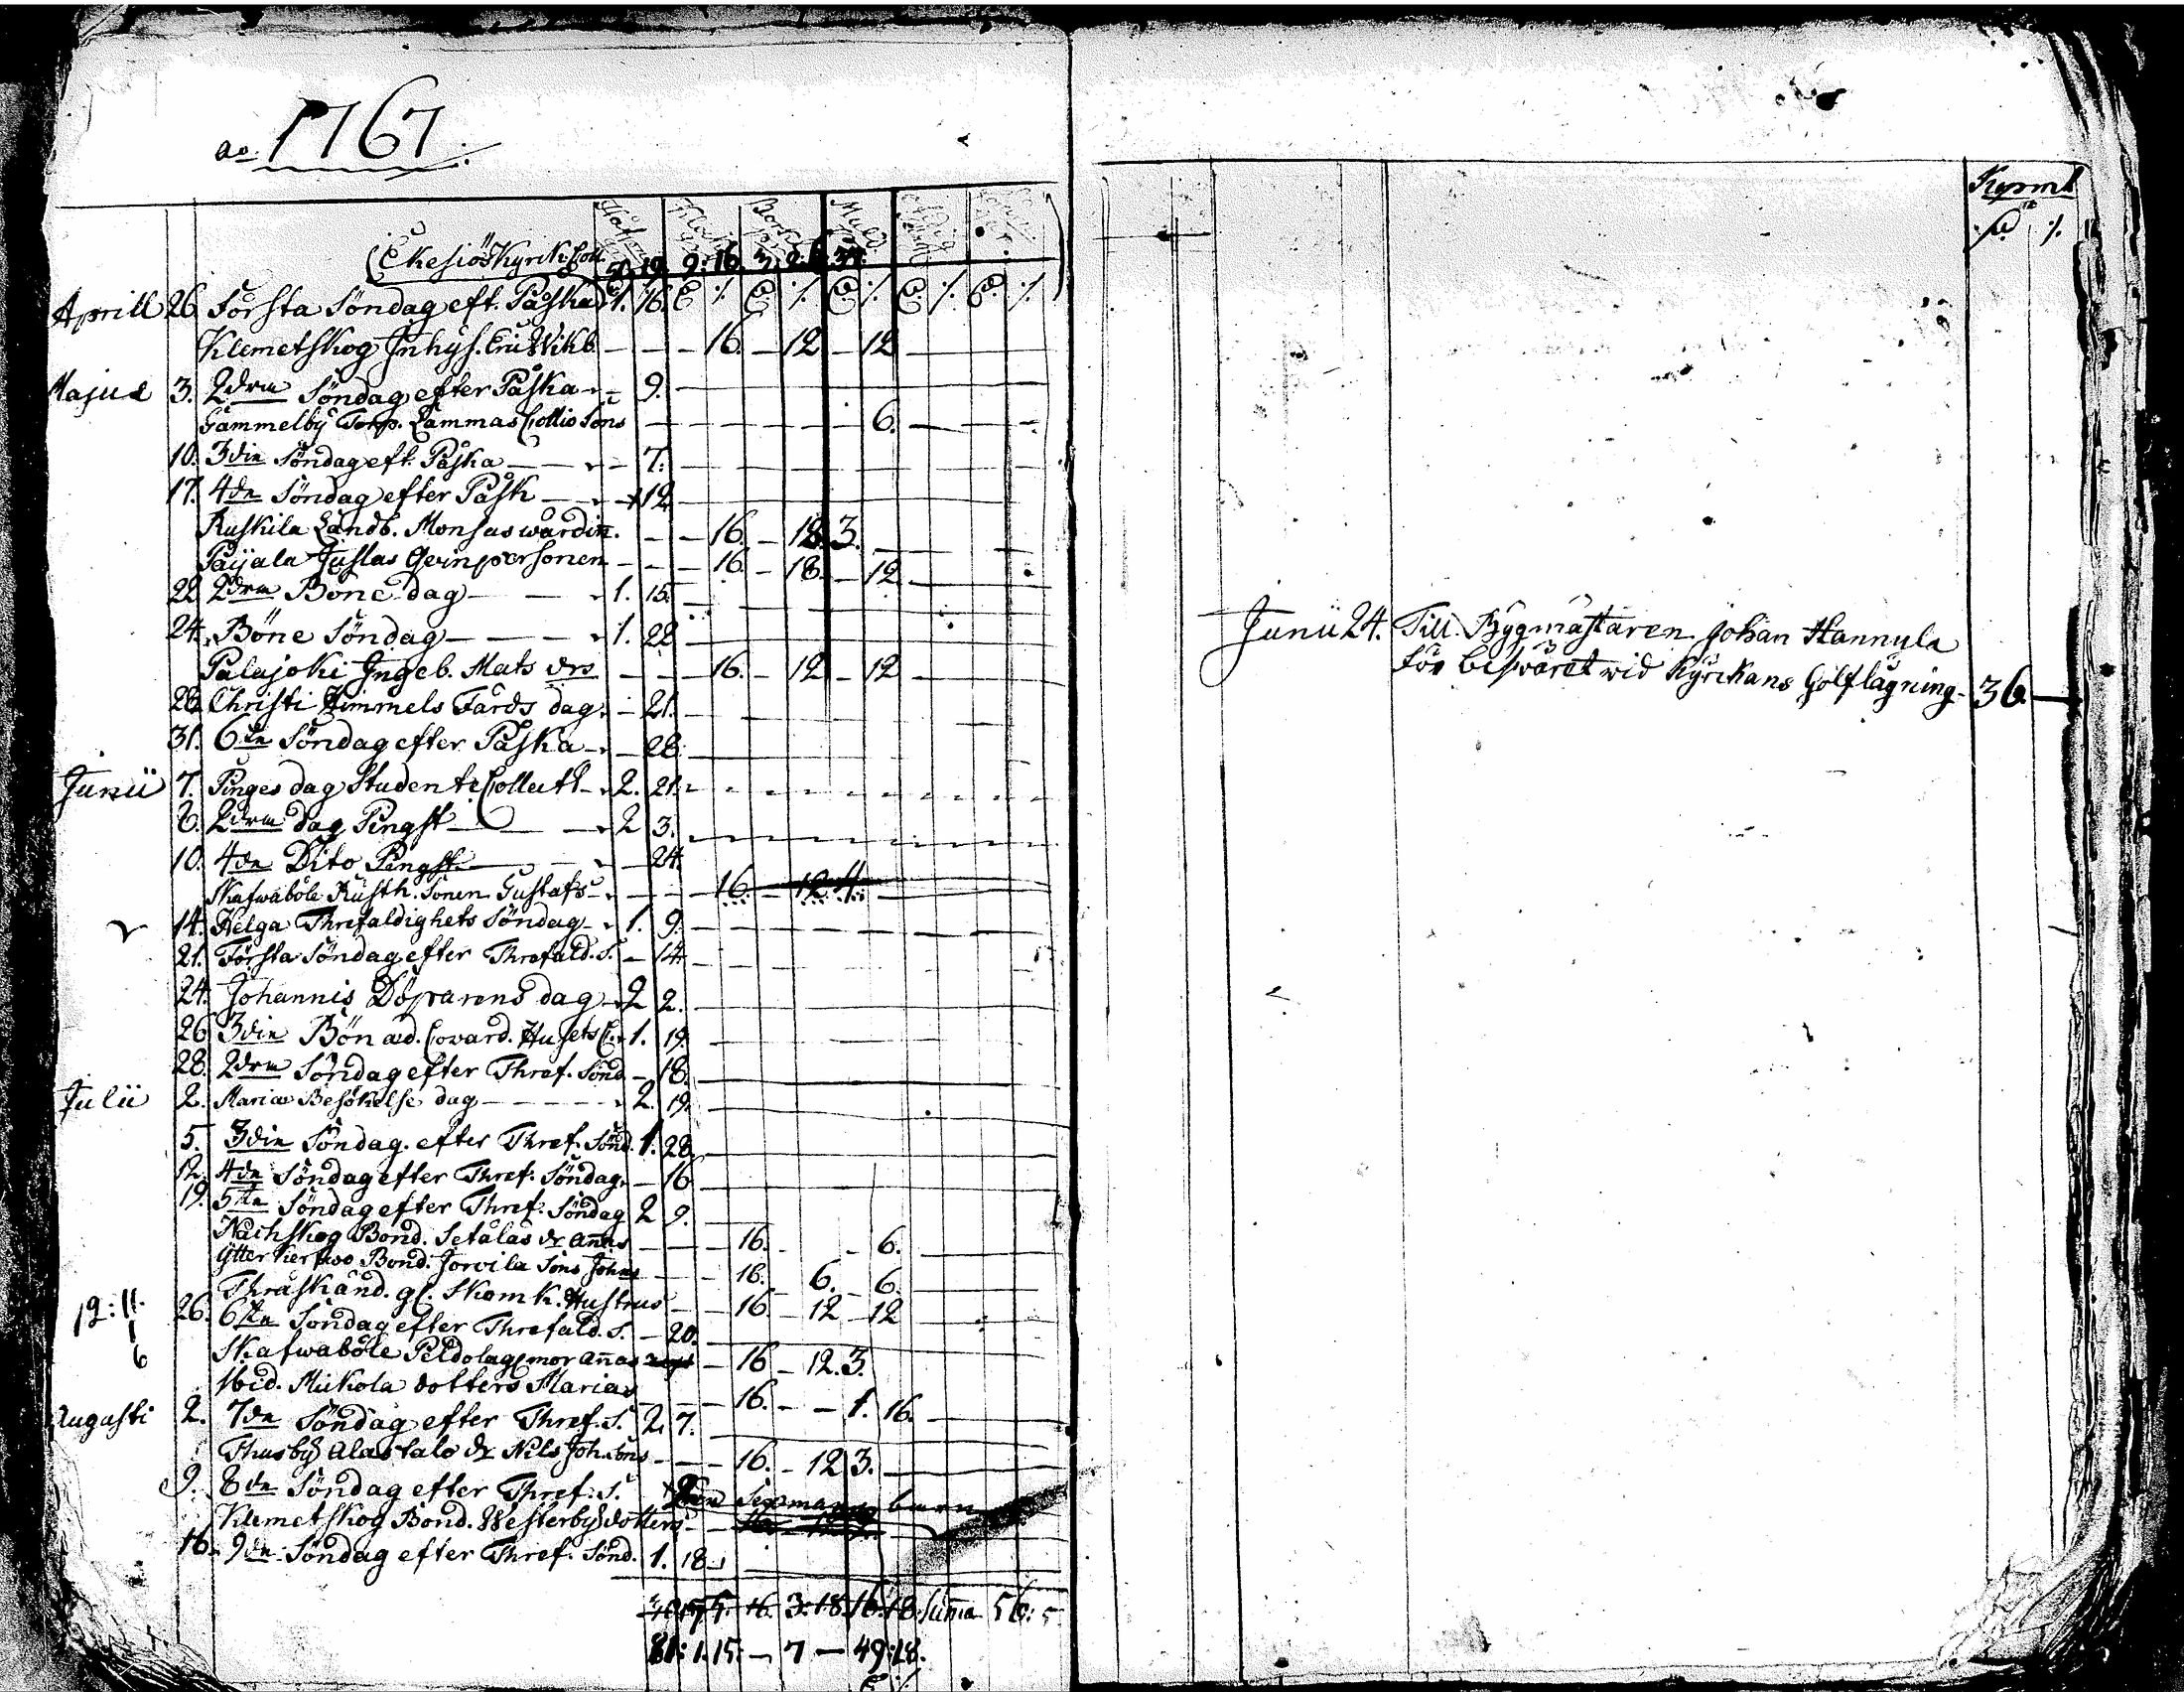 ao. 1767
Ekesiös Kyrik. Coll. 50. 19. 9: 16. 3. 34.
Aprill 26. Första Söndag eft. Påska 1. 16.
Klemetskog Inhys. Eric Wikb. — — — 16. — 12 — 12
Majus 3. 2dra Söndag efter Påska — 9.
Gammelby Torp. Lammas Sons 6.
10. 3die Söndag eft. Påska — — 7.
17. 4de Söndag efter Påsk — — 12
Ruskila Landb. Monsas wärdin. — — 16. — 18. 3.
Paijala Juslas Qvinpersonen — — — 16. — 18. — 12
22 2dra Böne dag — — 1. 15.
24. Böne Söndag — — — 1. 22
Palajoki Ingeb. Mats drs — — 16. — 12 — 12
28 Christi Himmels Färds dag. — 21.
31. 6te Söndag efter Påska — — 28.
Junii 7. Pinges dag Studente Collect — 2. 21.
8. 2dra dag Pingst — — 2 3.
10. 4de Dito Pingst — — 24.
Skafwaböle Rusth. Sonen Gustafs — — — 16 — 12 4.
14. Helga Threfaldighets Söndag — 1. 9.
21. Första Söndag efter Threfald. S. — 14
24. Johannis Döparens dag — 2 2.
26 3die Bön ad. Husets C. 1. 19.
28. 2dra Söndag efter Thref. Sönd — 18.
Julii 2. Mariæ Besökelse dag — — — 2. 19.
5. 3die Söndag. efter Thref. Sönd. 1. 28.
12. 4de Söndag efter Thref. Söndag. — 16
19. 5te Söndag efter Thref: Söndag 2 9.
Nackskog Bond. Setälas dr Annas — — — 16. — 6.
Bond. Jorvila Sons Johns — — 16. 6. — 6.
Thräskänd. gl. Skomk. Hustrus — — 16 — 12 — 12
12:11.
26. 6te Söndag efter Threfald. S. — 20.
6
Skafwaböle Peldolags mor Annas — 16 — 12. 3.
Ibid. Mickola dotters Marias — — 16. — — 1. 16.
Augusti 2. 7de Söndag efter Thref. S. 2. 7.
Thusby Alastalo dr Nils Joh. Sons — — — 16. — 12 3.
9. 8de Söndag efter Thref: S. barn
Klemetskog Bond. Westerbys dotters
16. 9de Söndag efter Thref. Sönd. 1. 18.
16. 3:18. 16:18. Suma 56: 5
81: 1. 15. — 7 — 49:18.
Junii 24. Till Bygmästaren Johan Hannula
för beswäret wid Kyrckans Golflagning — 36. —